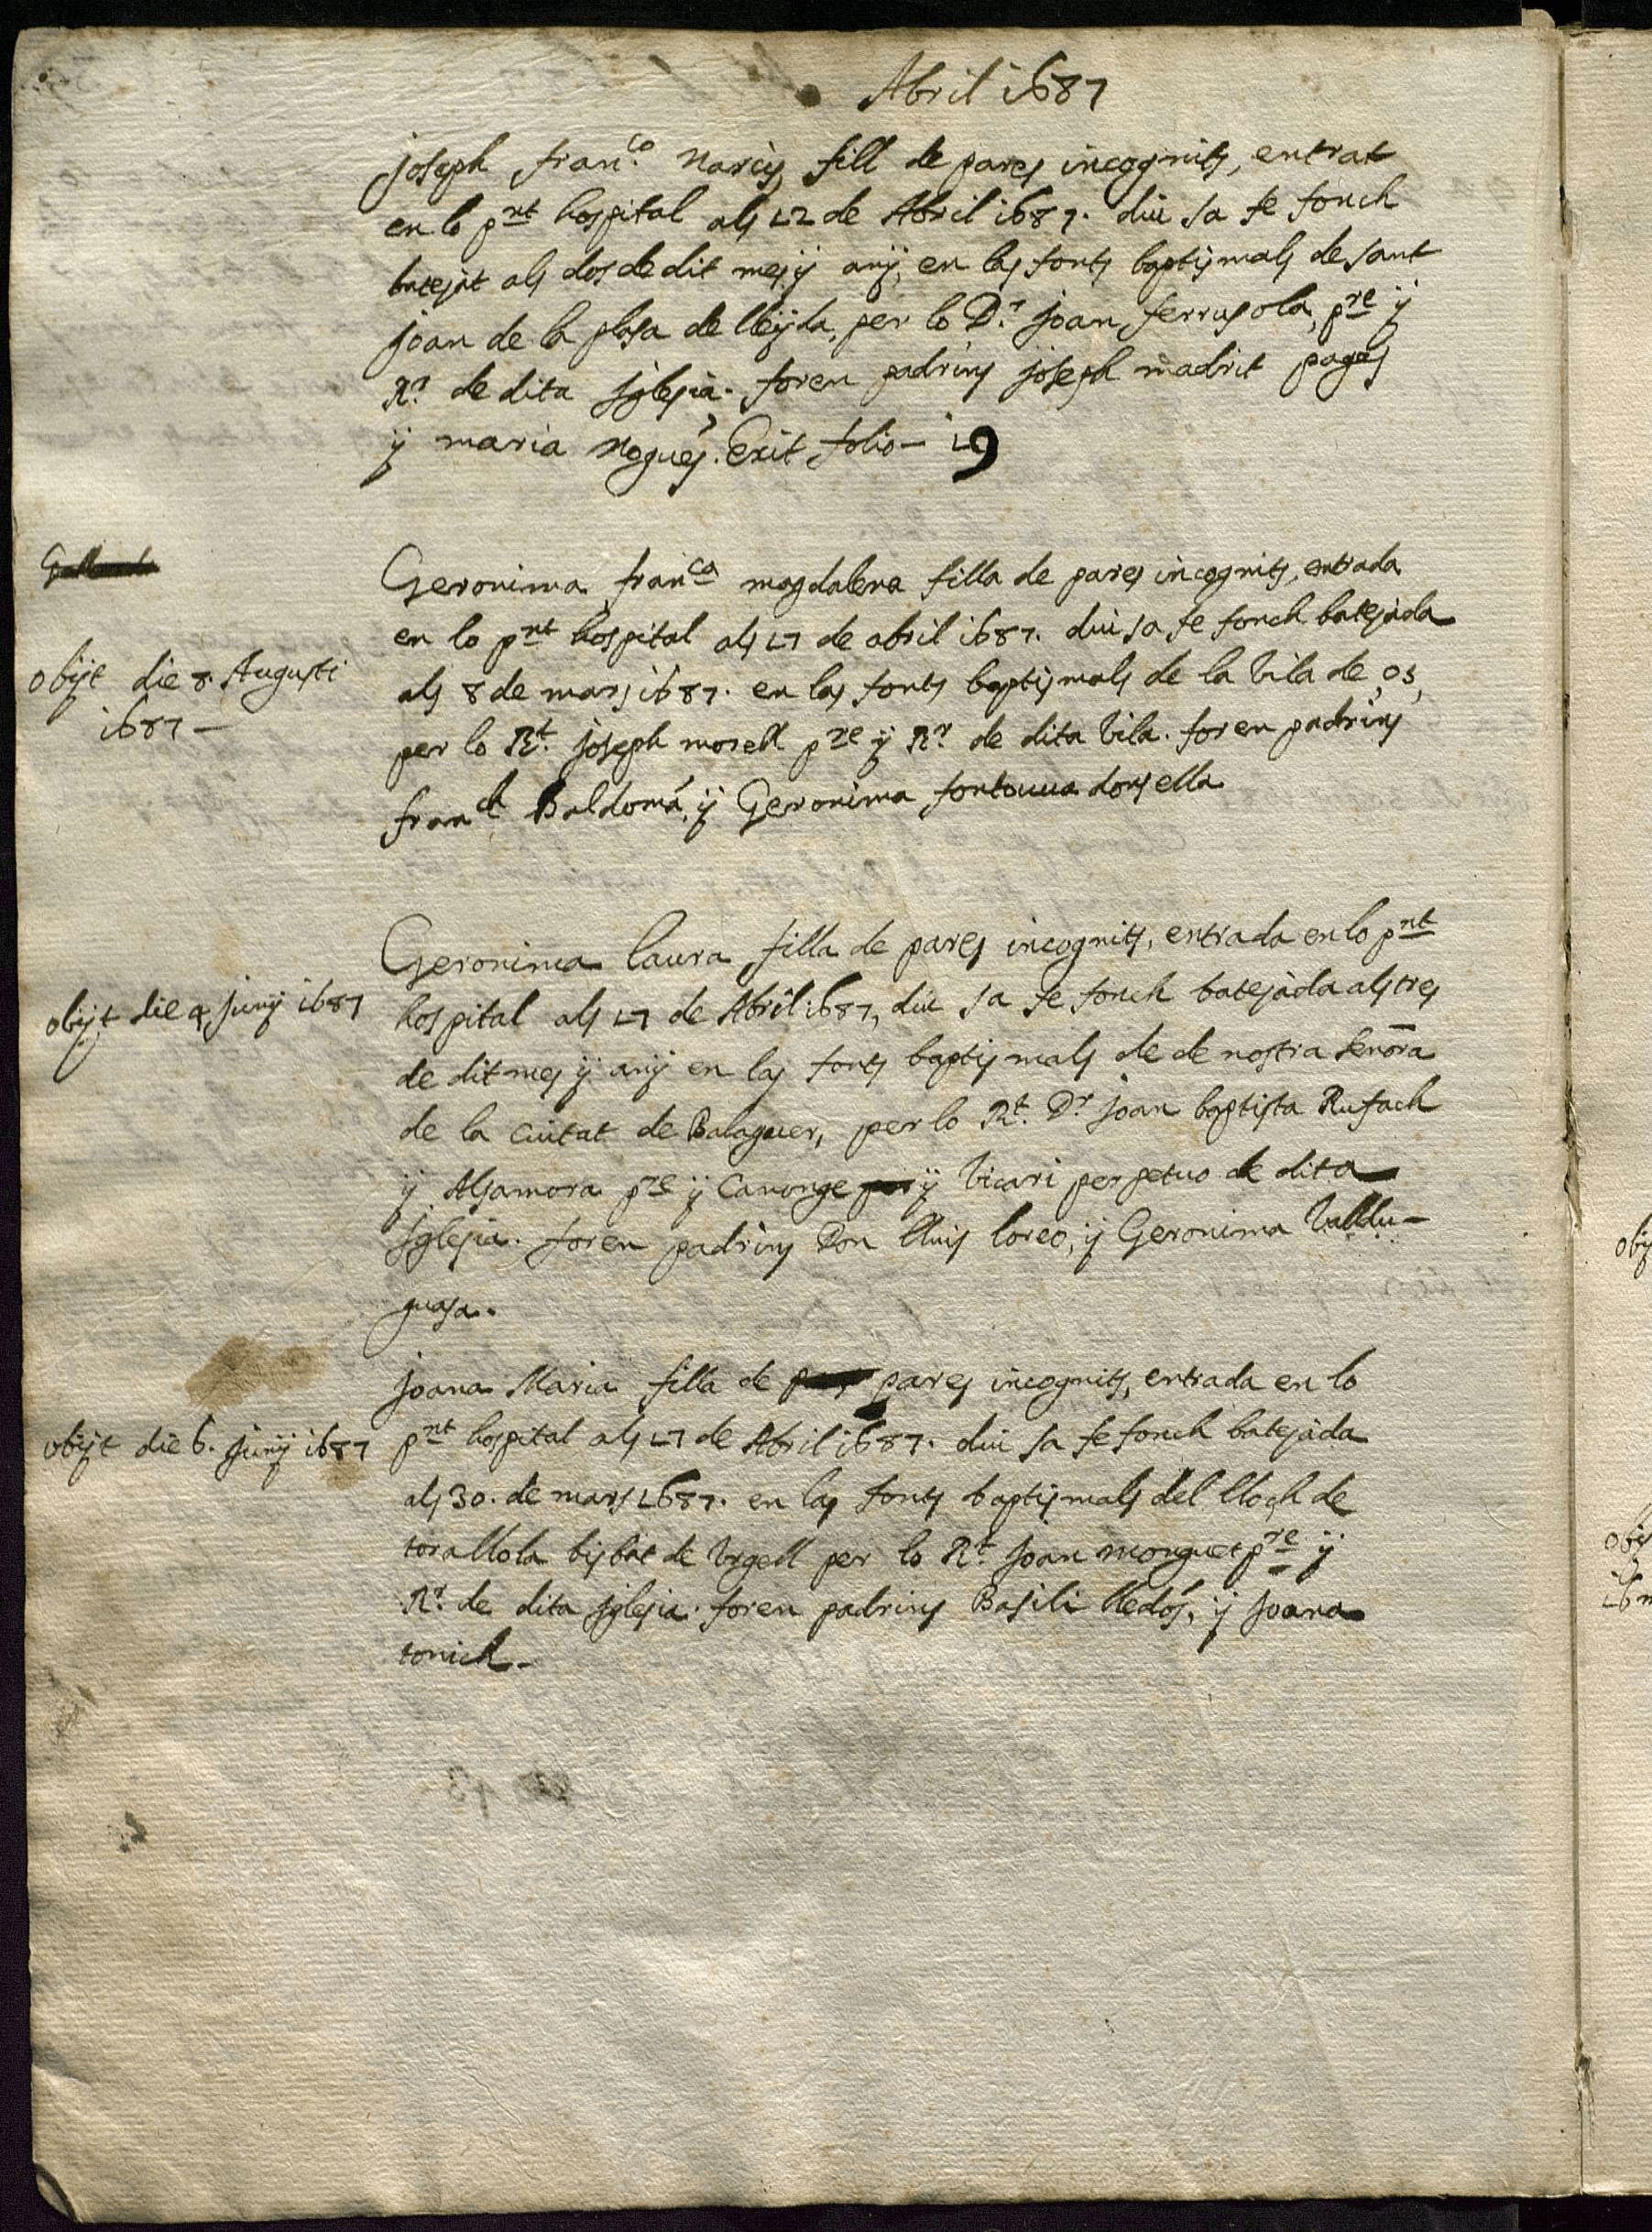 Abril 1687
Joseph fran.co Narcis, fill de pares incognits, entrat
en lo pnt hospital als 12 de Abril 1687. diu sa fe fonch
batejat als dos de dit mes ÿ anÿ, en las fonts baptismals de sant
Joan de la plasa de lleÿda, per lo D.r Joan ferrusola, pre ÿ
R.r de dita Iglesia. foren padrins Joseph madrit pages
ÿ maria Nogués. Exit folio - 19
obÿt die 8. Augusti
1687 -
Geronima franca magdalena filla de pares incognits, entrada
en lo pnt hospital als 17 de abril 1687. diu sa fe fonch batejada
als 8 de mars 1687. en las fonts baptismals de la Vila de os,
per lo Rt. Joseph morell pre ÿ Rr de dita Vila. foren padrins
franch Baldomá, ÿ Geronima fontoua donsella
obÿt die 4 Junÿ 1687
Geronima laura filla de pares incognits, entrada en lo pnt
hospital als 17 de Abril 1687, diu sa fe fonch batejada als tres
de dit mes ÿ anÿ en las fonts baptismals de de nostra señora
de la Ciutat de Balaguer, per lo Rt. Dr Joan baptista Rufach
ÿ Alsamora pre ÿ Canonge per ÿ Vicari perpetuo de dita
Iglesia. foren padrins Don lluis loreo, ÿ Geronima Valldu-
guasa.
obÿt die 6. Junÿ 1687
Joana Maria filla de pares incognits, entrada en lo
pnt hospital als 17 de Abril 1687. diu sa fe fonch batejada
als 30. de mars 1687. en las fonts baptismals del lloch de
torallola bisbat de Vrgell per lo Rt. Joan monguet pre ÿ
R.r de dita Iglesia. foren padrins Basili lledós, ÿ Joana
tonich -